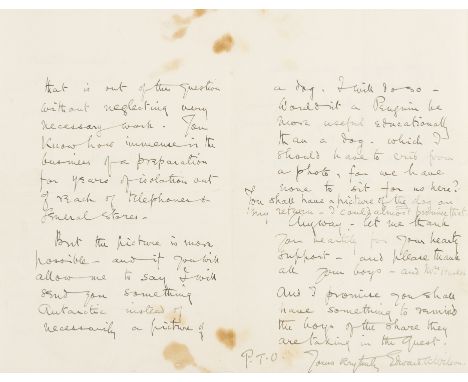 that is out of the question
without neglecting very
necessary work. You
know how immense is the
business of a preparation
for years of isolation out
of reach of telephones &
General Stores.
But the picture is more
possible - and if you will
allow me to say I will
send you something
Antarctic instead of
necessarily a picture of
a dog. I will do so -
Would it a Penguin be
more useful educationally
than a dog. which I
should have to crib from
a photo, for we have
none to sit for us here?
You shall have a picture of the dog on
my return - I could almost promise that
Anyway - let me thank
you heartily for your hearty
support - and please thank
all your boys - and
And I promise you shall
have something to remind
the boys of the share they
are taking in the Quest.
P.T.O. Yours very truly Edward A Wilson